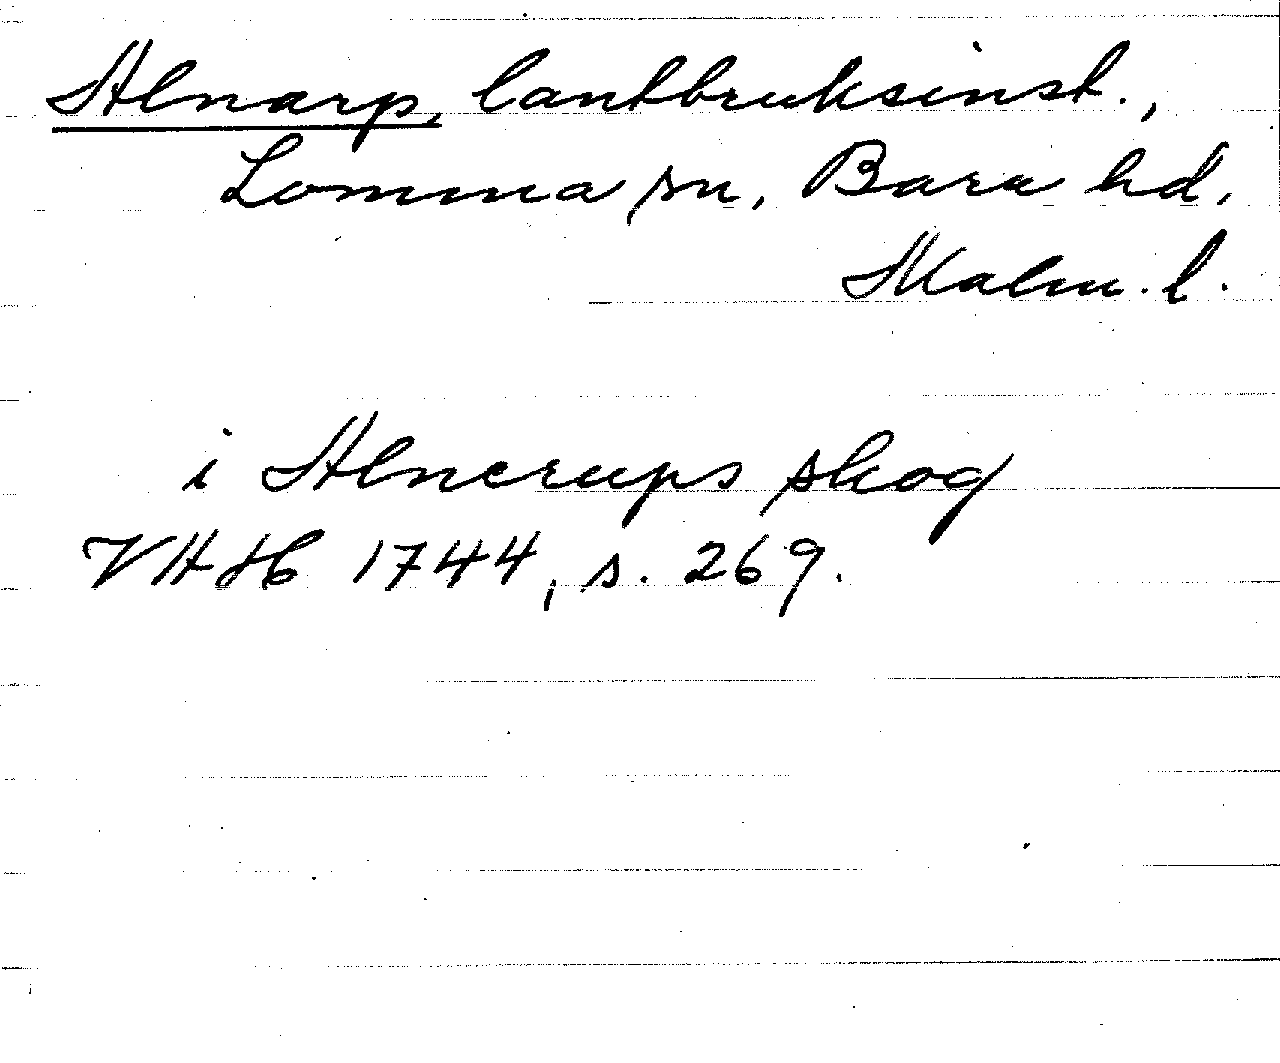 Alnarp, lantbruksinst.,
Lomma sn, Bara hd,
Malm. l.
i Alnerups skog
VHAH 1744, s. 269.